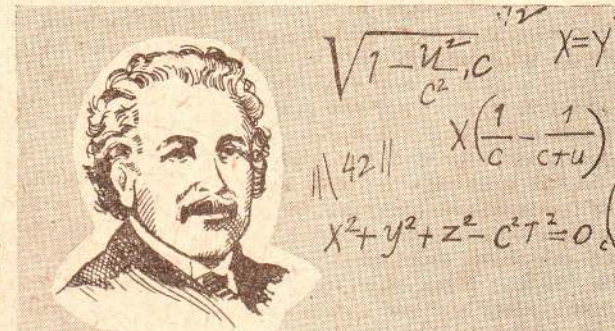 √1-u²/c², c X=Y
X(1/c - 1/c+u)
42
X²+y²+z²-c²T²=0